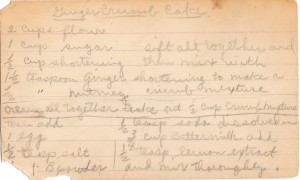 Ginger Crumb Cake
2 cups flour
1 cup sugar sift all together and
1/2 cup shortening then mix with
1/2 teaspoon Ginger shortening to make a
1/2 " nutmeg crumb mixture
Cream all together take out 1/2 cup crumb mixture
Then add 1/2 teasp soda dissolved in
1 egg cup Buttermilk add
1/2 teasp salt 1/2 teasp, lemon extract
powder and mix thoroughly.